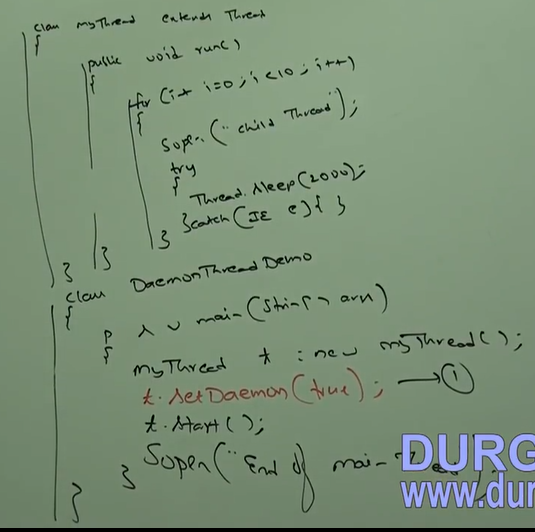 class myThread extends Thread
{
public void run()
{
for (int i=0; i<10; i++)
{
Sopln("child Thread");
try
{
Thread.sleep(2000);
}catch(IE e){ }
}
}
}
class DaemonThreadDemo
{
p s v main(String[] args)
{
myThread t = new myThread();
t.setDaemon(true); → ①
t.start();
Sopln("End of main
}
}
DURG
www.dur